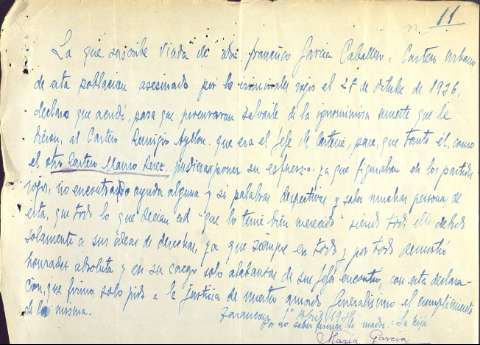 11
La que suscribe viuda de Don Francisco Garcia Caballero, Cartero Urbano
de esta poblacion asesinado por los criminales rojos el 27 de octubre de 1936,
declaro que acudi, para que procuraran salvarle de la ignominiosa muerte que le
dieron, al Cartero Remigio Ayllon, que era el Jefe de Carteria, para que tanto él, como
el otro Cartero Mauro Perez, pusieran su esfuerzo ya que figuraban en los partidos
rojos, no encontrando ayuda alguna y si palabras despectivas y saben muchas personas de
esta, que todo lo que decian era "que lo tenia bien merecido" siendo todo ello debido
solamente a sus ideas de derechas, ya que siempre en todo y por todo demostró
honradez absoluta y en su cargo solo alabanzas de sus Jefes encontró, con esta declara-
cion, que firmo solo pido a la Justicia de nuestro amado Generalisimo el cumplimiento
de la misma.
Tarancon
Por no saber firmar la madre: La hija
Maria Garcia